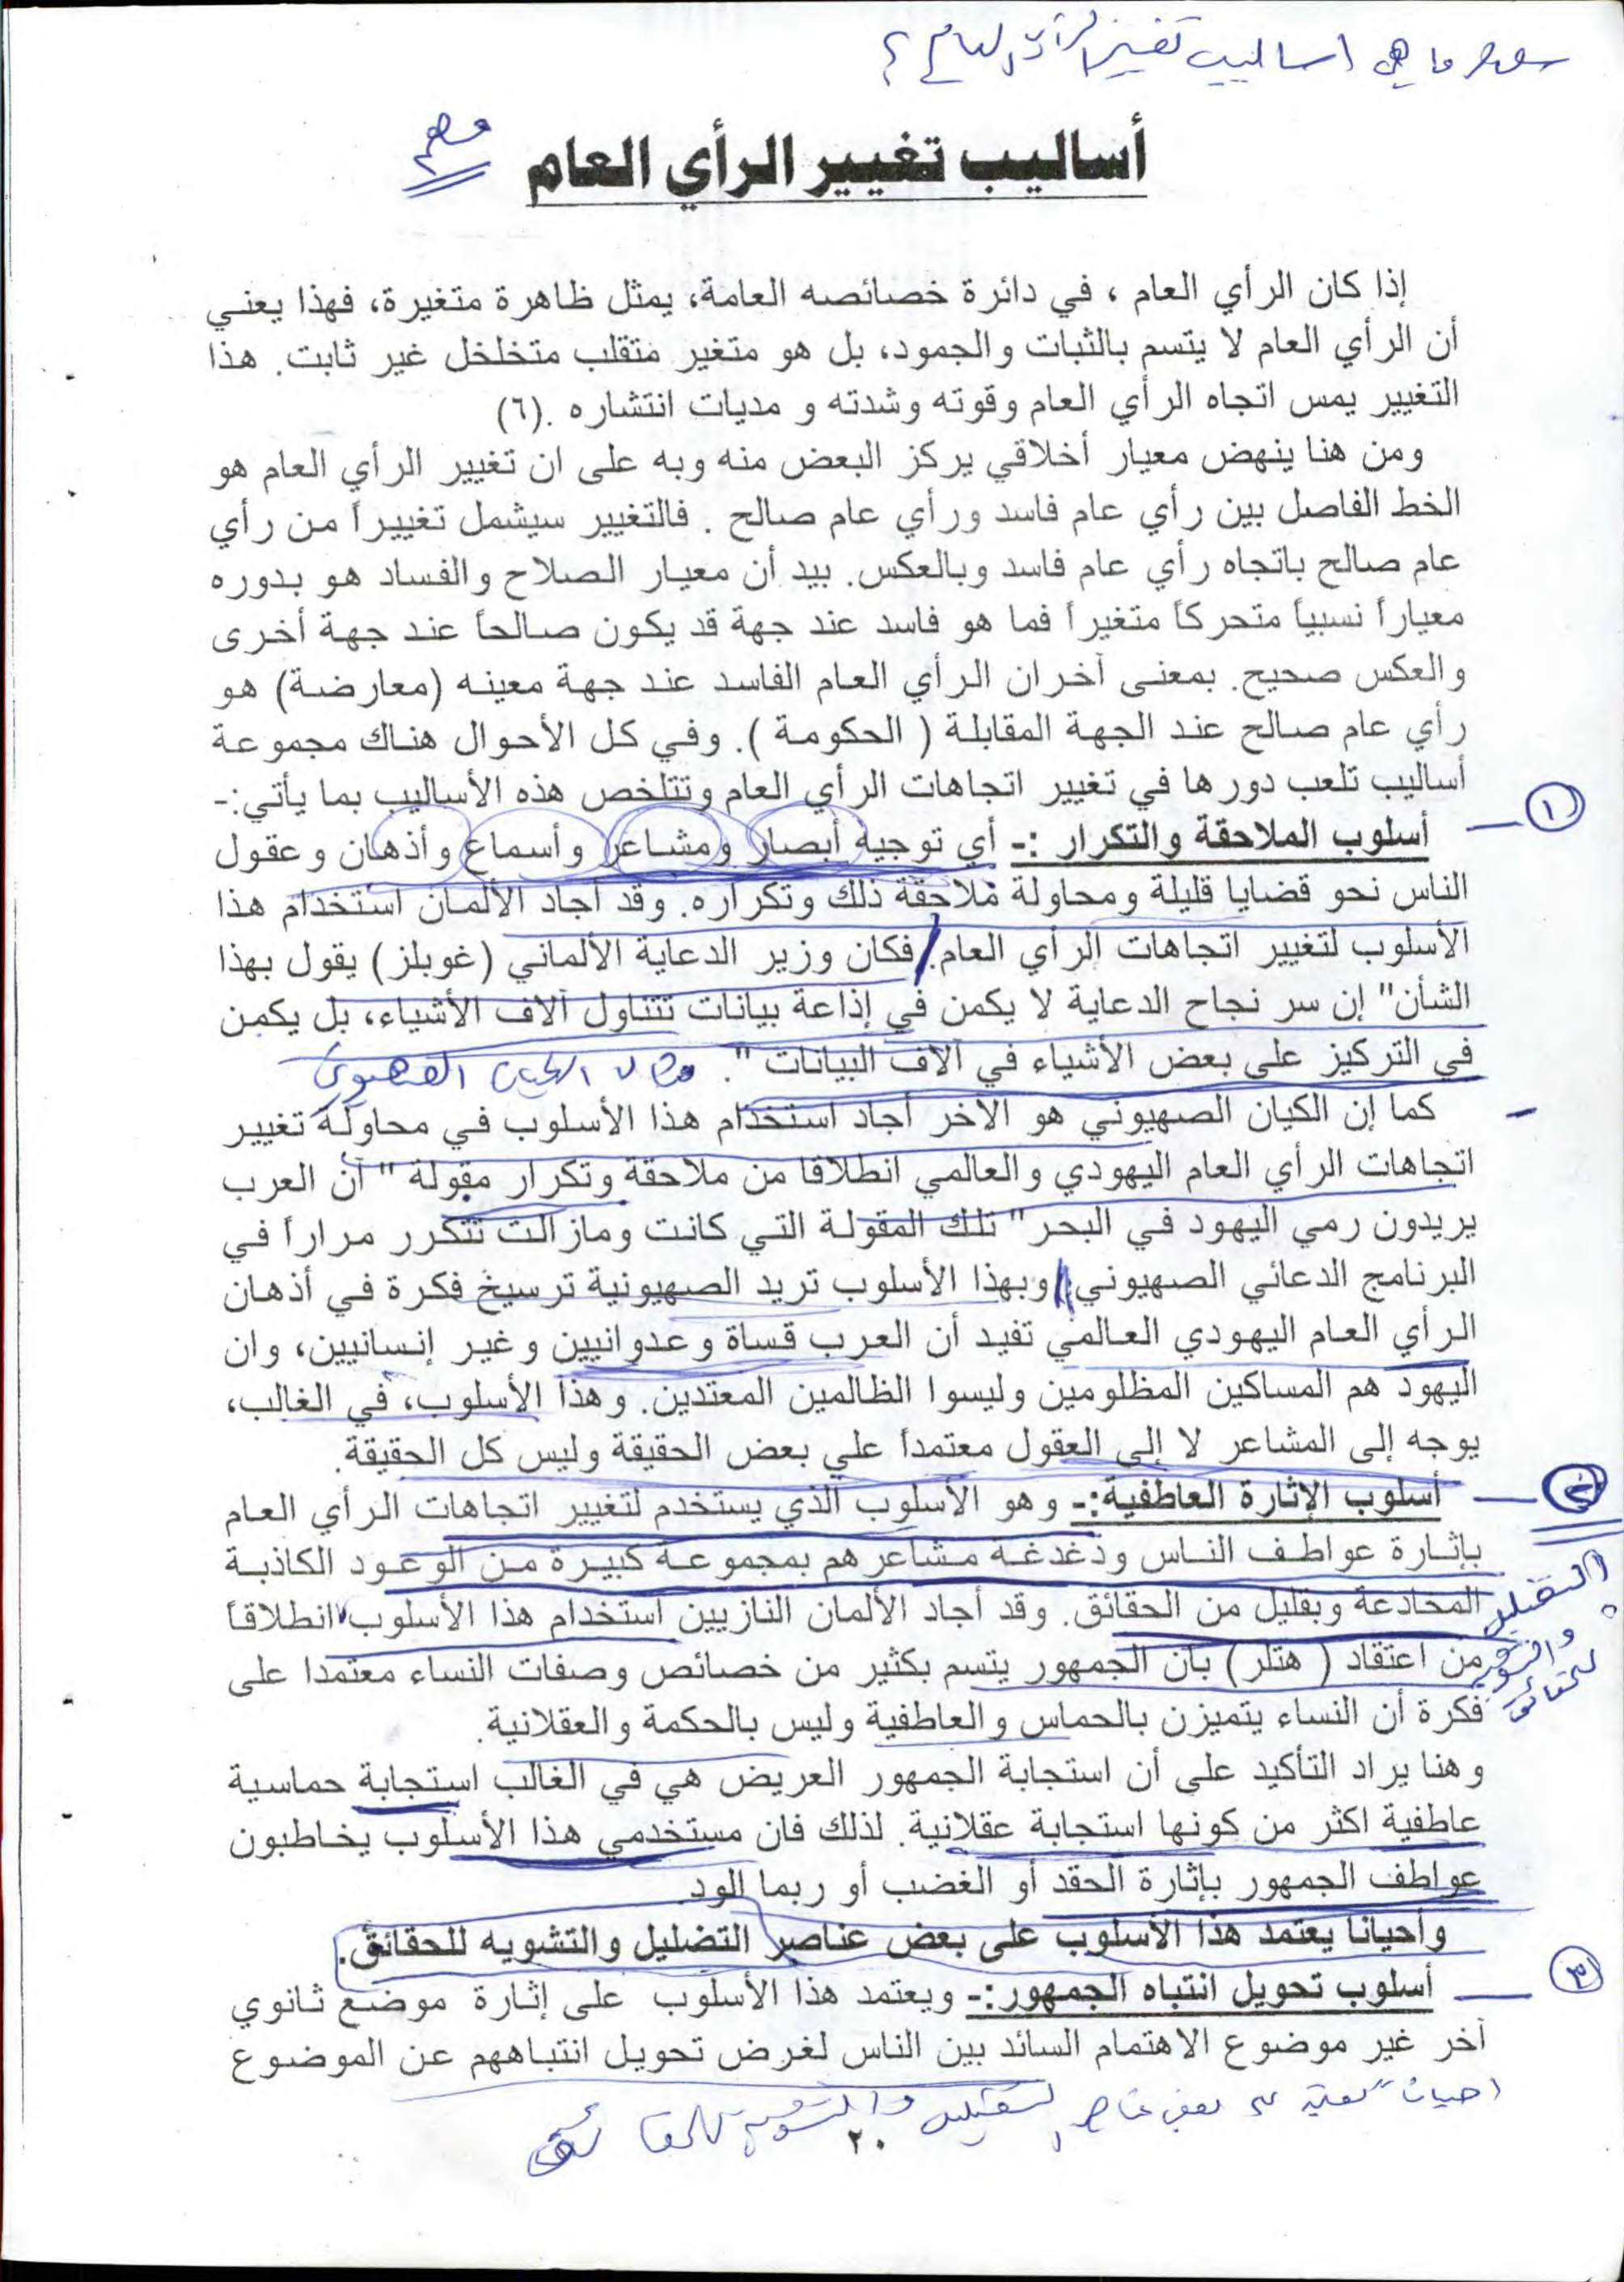 س/ ما هي اساليب تغيير الرأي العام ؟
مهم
أساليب تغيير الرأي العام
إذا كان الرأي العام ، في دائرة خصائصه العامة، يمثل ظاهرة متغيرة، فهذا يعني
أن الرأي العام لا يتسم بالثبات والجمود، بل هو متغير متقلب متخلخل غير ثابت. هذا
التغيير يمس اتجاه الرأي العام وقوته وشدته و مديات انتشاره .(٦)
ومن هنا ينهض معيار أخلاقي يركز البعض منه وبه على ان تغيير الرأي العام هو
الخط الفاصل بين رأي عام فاسد ورأي عام صالح . فالتغيير سيشمل تغييراً من رأي
عام صالح باتجاه رأي عام فاسد وبالعكس. بيد أن معيار الصلاح والفساد هو بدوره
معياراً نسبياً متحركاً متغيراً فما هو فاسد عند جهة قد يكون صالحاً عند جهة أخرى
والعكس صحيح. بمعنى آخر ان الرأي العام الفاسد عند جهة معينه (معارضة) هو
رأي عام صالح عند الجهة المقابلة ( الحكومة ). وفي كل الأحوال هناك مجموعة
أساليب تلعب دورها في تغيير اتجاهات الرأي العام وتتلخص هذه الأساليب بما يأتي:-
١ أسلوب الملاحقة والتكرار :- أي توجيه أبصار ومشاعر وأسماع وأذهان وعقول
الناس نحو قضايا قليلة ومحاولة ملاحقة ذلك وتكراره. وقد أجاد الألمان استخدام هذا
الأسلوب لتغيير اتجاهات الرأي العام. فكان وزير الدعاية الألماني (غوبلز) يقول بهذا
الشأن" إن سر نجاح الدعاية لا يكمن في إذاعة بيانات تتناول آلاف الأشياء، بل يكمن
في التركيز على بعض الأشياء في آلاف البيانات ". مثال الكيان الصهيوني
- كما إن الكيان الصهيوني هو الآخر أجاد استخدام هذا الأسلوب في محاولة تغيير
اتجاهات الرأي العام اليهودي والعالمي انطلاقا من ملاحقة وتكرار مقولة " أن العرب
يريدون رمي اليهود في البحر" تلك المقولة التي كانت ومازالت تتكرر مراراً في
البرنامج الدعائي الصهيوني وبهذا الأسلوب تريد الصهيونية ترسيخ فكرة في أذهان
الرأي العام اليهودي العالمي تفيد أن العرب قساة وعدوانيين وغير إنسانيين، وان
اليهود هم المساكين المظلومين وليسوا الظالمين المعتدين. وهذا الأسلوب، في الغالب،
يوجه إلى المشاعر لا إلى العقول معتمداً على بعض الحقيقة وليس كل الحقيقة.
٢ أسلوب الإثارة العاطفية:- وهو الأسلوب الذي يستخدم لتغيير اتجاهات الرأي العام
بإثارة عواطف الناس ودغدغة مشاعرهم بمجموعة كبيرة من الوعود الكاذبة
المخادعة وبقليل من الحقائق. وقد أجاد الألمان النازيين استخدام هذا الأسلوب انطلاقاً
من اعتقاد ( هتلر) بان الجمهور يتسم بكثير من خصائص وصفات النساء معتمدا على
فكرة أن النساء يتميزن بالحماس والعاطفية وليس بالحكمة والعقلانية.
التضليل
والتشويه
للحقائق
وهنا يراد التأكيد على أن استجابة الجمهور العريض هي في الغالب استجابة حماسية
عاطفية اكثر من كونها استجابة عقلانية. لذلك فان مستخدمي هذا الأسلوب يخاطبون
عواطف الجمهور بإثارة الحقد أو الغضب أو ربما الود.
وأحيانا يعتمد هذا الأسلوب على بعض عناصر التضليل والتشويه للحقائق.
٣ أسلوب تحويل انتباه الجمهور:- ويعتمد هذا الأسلوب على إثارة موضع ثانوي
آخر غير موضوع الاهتمام السائد بين الناس لغرض تحويل انتباههم عن الموضوع
احياناً يعتمد على بعض عناصر التضليل والتشويه للحقائق
٢٠